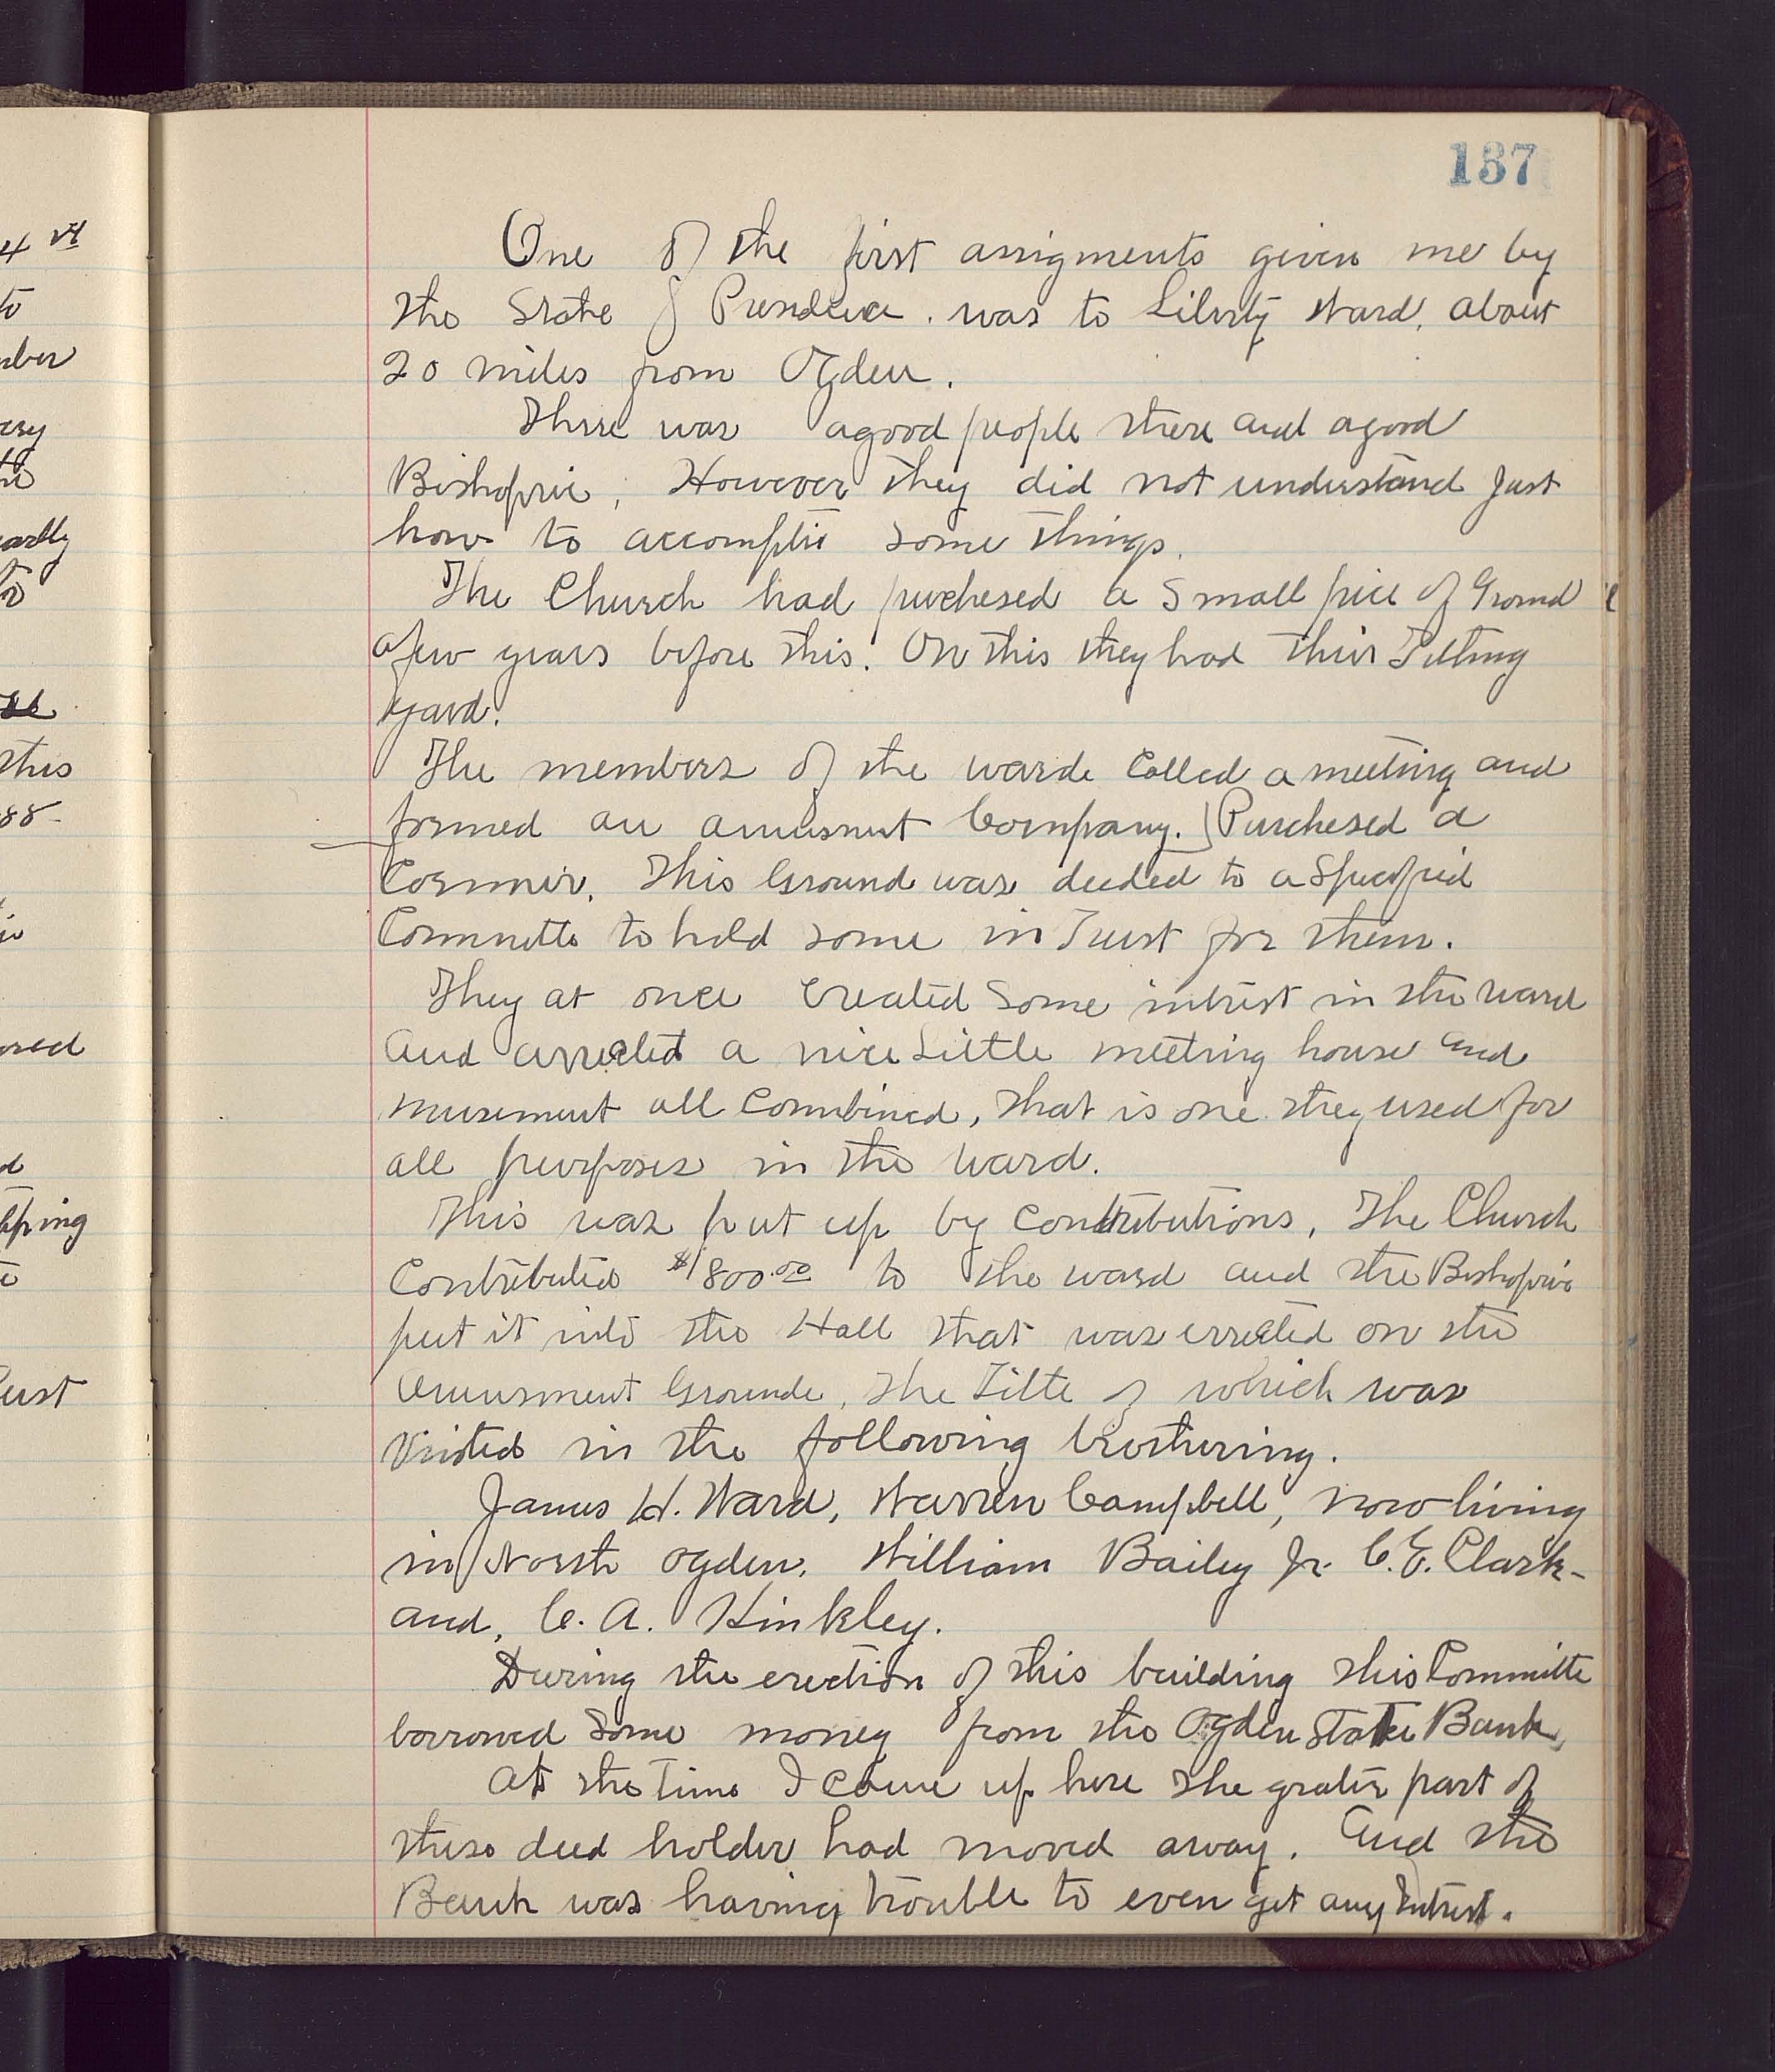 137
One of the first assigments given me by
the State of Presidence. was to Liberty Ward, about
20 miles from Ogden.
There was agood people there and agood
Bishopric; However they did not understand Just
how to accomplis some things.
The Church had purchesed a Small piece of Ground
a few years before this. On this they had their Tithing
yard.
The members of the warde Called a meeting and
formed an amusment Company. Purchesed a
Cornner. This Ground was deeded to a Specified
Committe to hold some in Trust for them.
They at once Created Some intrest in the ward
and arrected a nice Little meeting house and
musement all Combined, that is one they used for
all purposes in the ward.
This was put up by Contributions, The Church
Contributed $1800.00 to the ward and the Bishopric
put it into the Hall that was errected on the
Amusment Grounde, The Title of which was
Visted in the following brothering.
James H. Ward, Warren Campbell, now living
in North Ogden, William Bailey Jr. C. E. Clark-
and, C. A. Hinkley.
During the erection of this building this Committe
borrowed Some money from the Ogden State Bank,
At the Time I came up here the grater part of
these deed holder had moved away. And the
Bank was having trouble to even get any Intrest.
4
to
this
88-